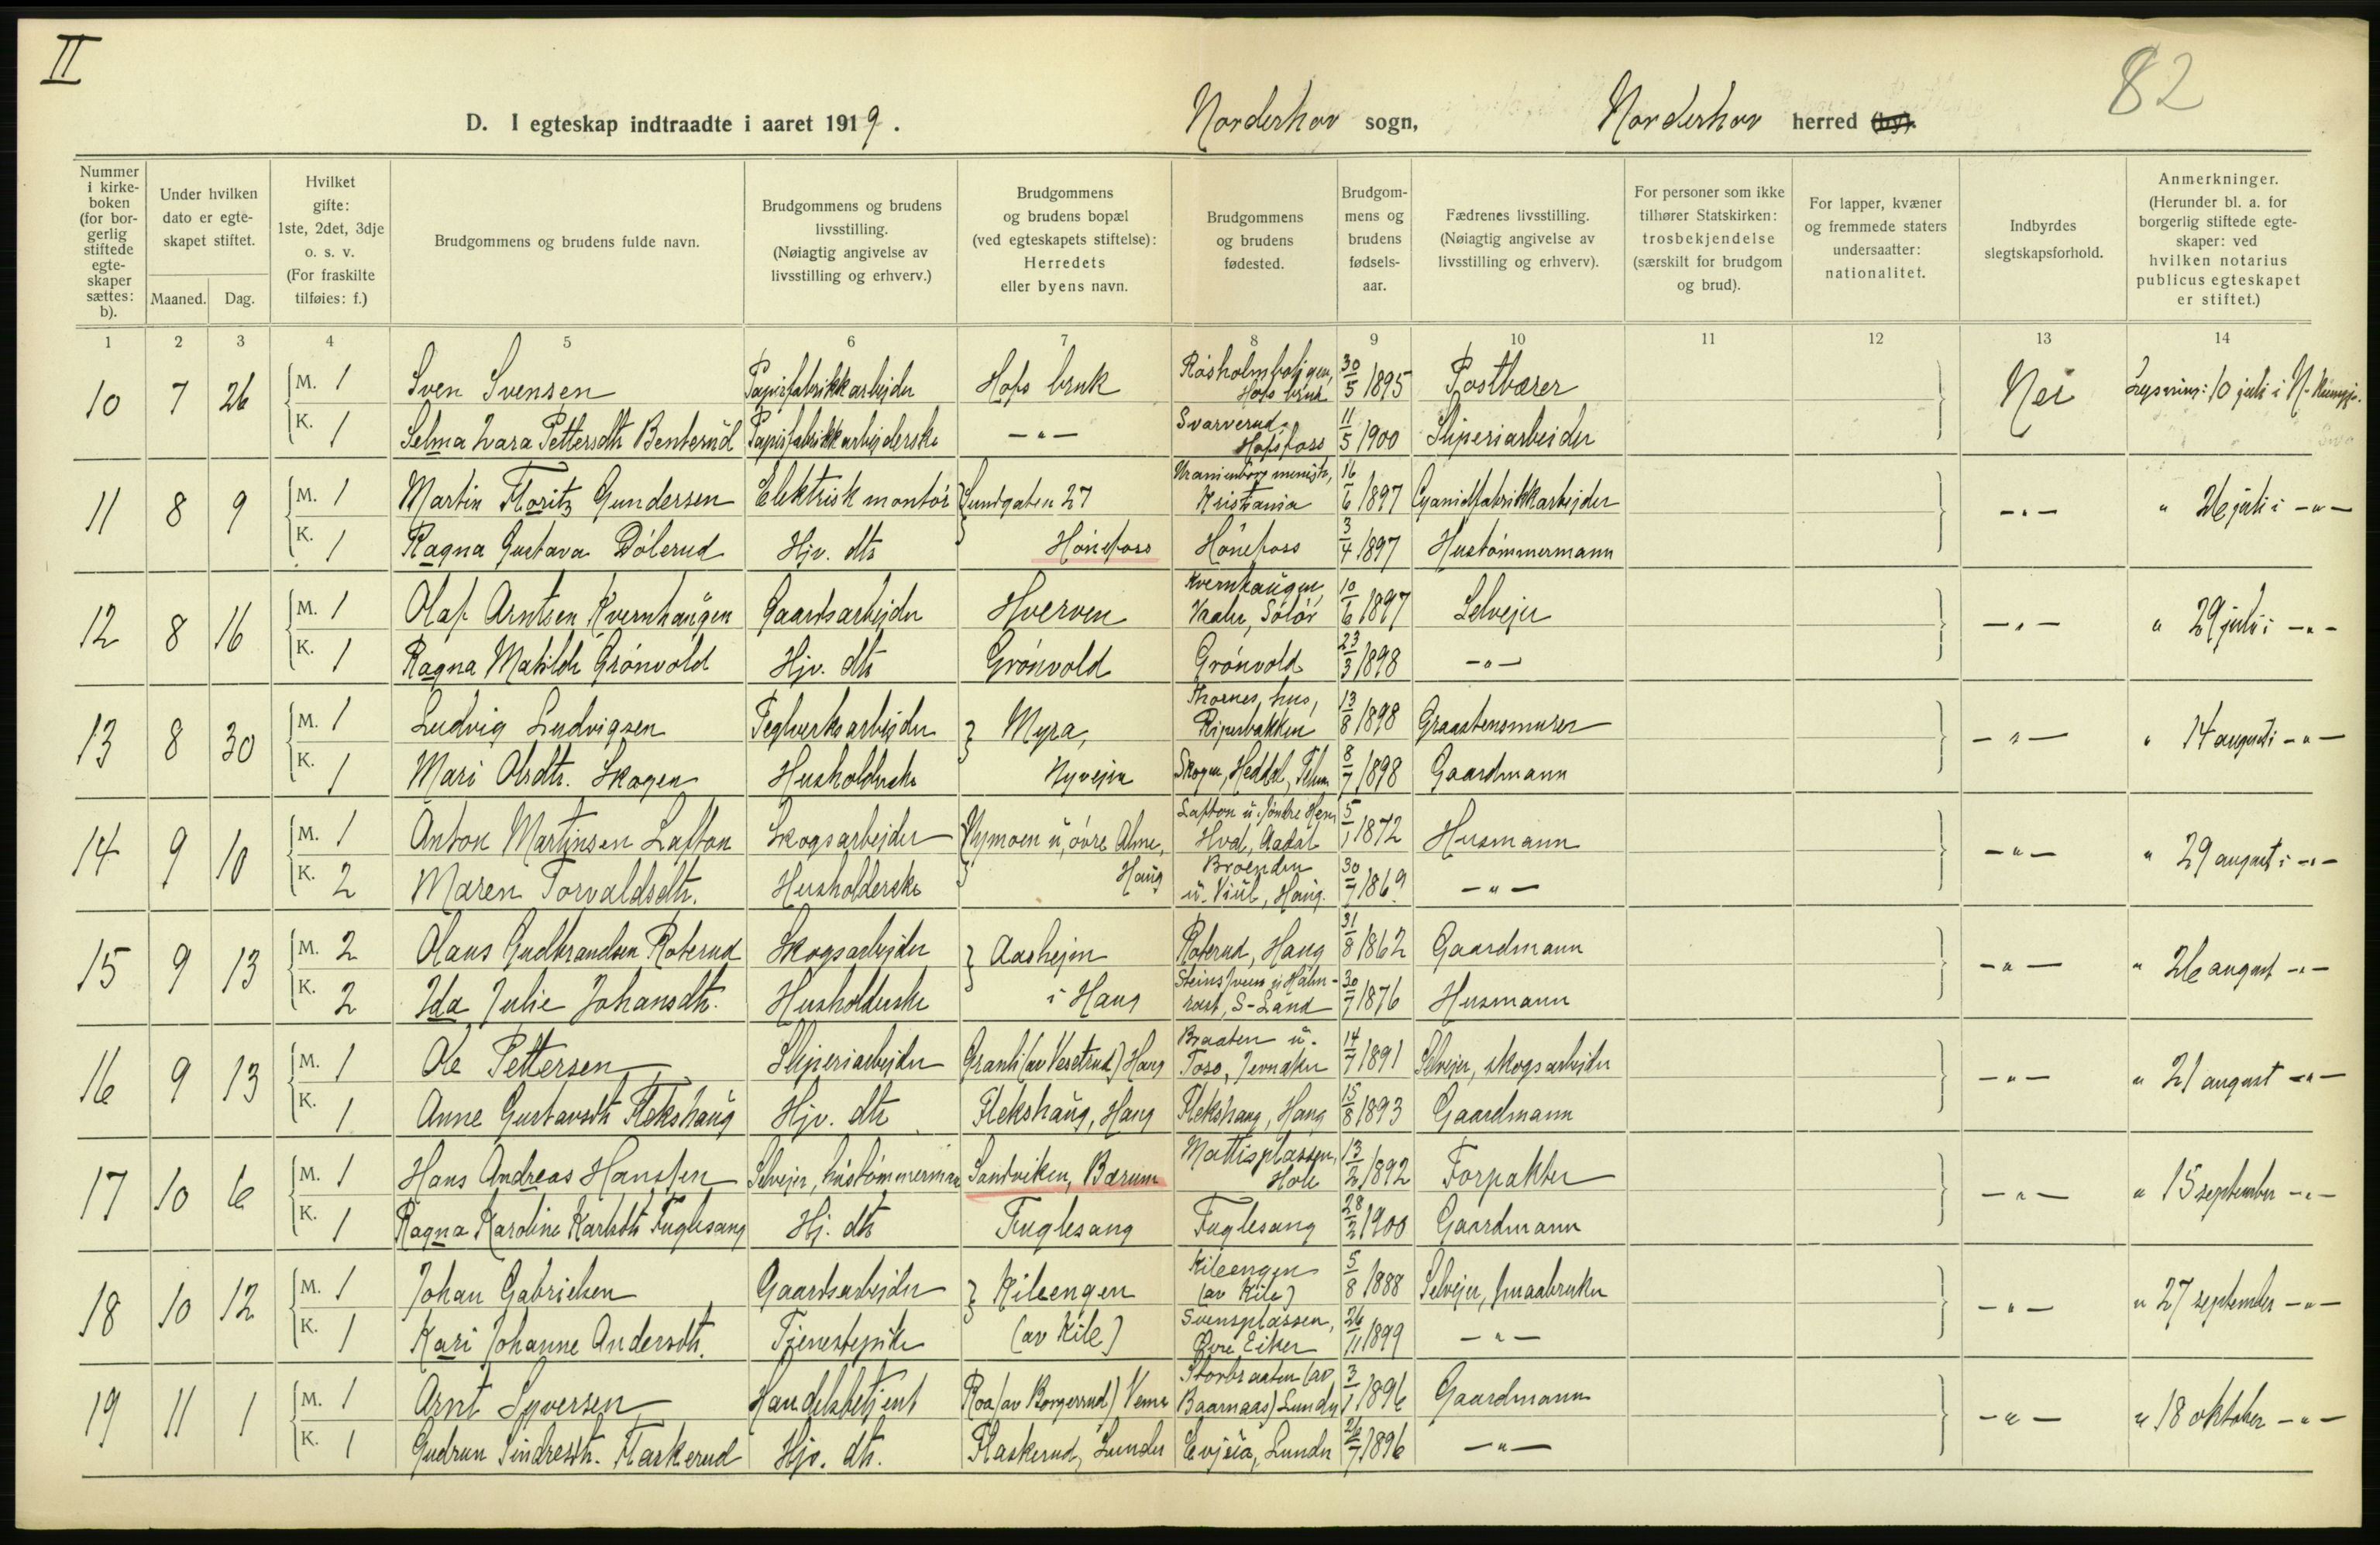 II
82
D. I egteskap indtraadte i aaret 1919.
Norderhov sogn,
Norderhov herred (by).
Nummer i kirke- boken (for bor- gerlig stiftede egte- skaper sættes: b).
Under hvilken dato er egte- skapet stiftet.
Maaned.
Dag.
Hvilket gifte: 1ste, 2det, 3dje o. s. v. (For fraskilte tilføies: f.)
Brudgommens og brudens fulde navn.
Brudgommens og brudens livsstilling. (Nøiagtig angivelse av livsstilling og erhverv.)
Brudgommens og brudens bopæl (ved egteskapets stiftelse): Herredets eller byens navn.
Brudgommens og brudens fødested.
Brudgom- mens og brudens fødsels- aar.
Fædrenes livsstilling. (Nøiagtig angivelse av livsstilling og erhverv).
For personer som ikke tilhører Statskirken: trosbekjendelse (særskilt for brudgom og brud).
For lapper, kvæner og fremmede staters undersaatter: nationalitet.
Indbyrdes slegtskapsforhold.
Anmerkninger. (Herunder bl. a. for borgerlig stiftede egte- skaper: ved hvilken notarius publicus egteskapet er stiftet.)
1 2 3 4 5 6 7 8 9 10 11 12 13 14
10 7 26 M. 1 Sven Svensen Papirfabrikkarbejder Hofs bruk Hofs bruk 30/5 1895 Postbærer Nei Lysning: 10 juli i
K. 1 Selma Zara Pettersdtr Benterud Papirfabrikkarbejderske -"- Svarverud Hofsfoss 11/5 1900 Sliperiarbeider
11 8 9 M. 1 Martin Moritz Gundersen Elektrisk montør Sundgaten 27 Uranienborg menigh., Kristiania 16/6 1897 Cyanidfabrikkarbejder -"- " 26 juli i -"-
K. 1 Ragna Gustava Dølerud Hjv. dtr Hønefoss Hønefoss 3/4 1897 Hustømmermann
12 8 16 M. 1 Olaf Arntsen Kvernhaugen Gaardsarbejder Hverven Kvernhaugen, Vaaler, Solør 10/6 1897 Selvejer -"- " 29 juli i -"-
K. 1 Ragna Matilde Grønvold Hjv. dtr Grønvold Grønvold 23/3 1898 -"-
13 8 30 M. 1 Ludvig Ludvigsen Teglverksarbejder Myra, Thornes hus, Riperbakken 13/8 1898 Graastensmurer -"- " 14 august i -"-
K. 1 Mari Olsdtr. Skogen Husholderske Nyvejen Skogen, Heddal, Telem. 8/7 1898 Gaardmann
14 9 10 M. 1 Anton Martinsen Lafton Skogsarbejder Nymoen u. øvre Alme, Lafton u. søndre Hval, Aadal 5/1 1872 Husmann -"- " 29 august i -"-
K. 2 Maren Torvaldsdtr. Husholderske Haug Broenden u. Viul, Haug. 30/7 1869 -"-
15 9 13 M. 2 Olaus Gudbrandsen Roterud Skogsarbejder Aasheim Roterud, Haug 31/8 1862 Gaardmann -"- " 26 august -"-
K. 2 Ida Julie Johansdtr. Husholderske i Haug S-Land 30/7 1876 Husmann
16 9 13 M. 1 Ole Pettersen Sliperiarbejder Granli (av Vesetrud) Haug Braaten u. Toso, Jevnaker 14/7 1891 Selvejer, skogsarbejder -"- " 21 august -"-
K. 1 Anne Gustavsdtr Flekshaug Hjv. dtr Flekshaug, Haug Flekshaug, Haug 15/8 1893 Gaardmann
17 10 6 M. 1 Hans Andreas Hanssen Selvejer, hustømmermann Sandviken, Bærum Mattisplassen, Hole 13/2 1892 Forpakter -"- " 15 september -"-
K. 1 Ragna Karoline Karlsdtr Fuglesang Hj. dtr Fuglesang Fuglesang 28/2 1900 Gaardmann
18 10 12 M. 1 Johan Gabrielsen Gaardsarbejder Kileengen Kileengen (av Kile) 5/8 1888 Selvejer, smaabruker -"- " 27 september -"-
K. 1 Kari Johanne Andersdtr. Tjenestepike (av Kile) Svensplassen, Øvre Eiker 26/11 1899 -"-
19 11 1 M. 1 Arnt Syversen Handelsbetjent Roa (av Borgerrud) Veme Storbraaten (av Baarnaas) Lunder 3/1 1896 Gaardmann -"- " 18 oktober -"-
K. 1 Gudrun Sindresdtr. Flaskerud Hjv. dtr. Flaskerud, Lunder Evjua, Lunder 26/7 1896 -"-